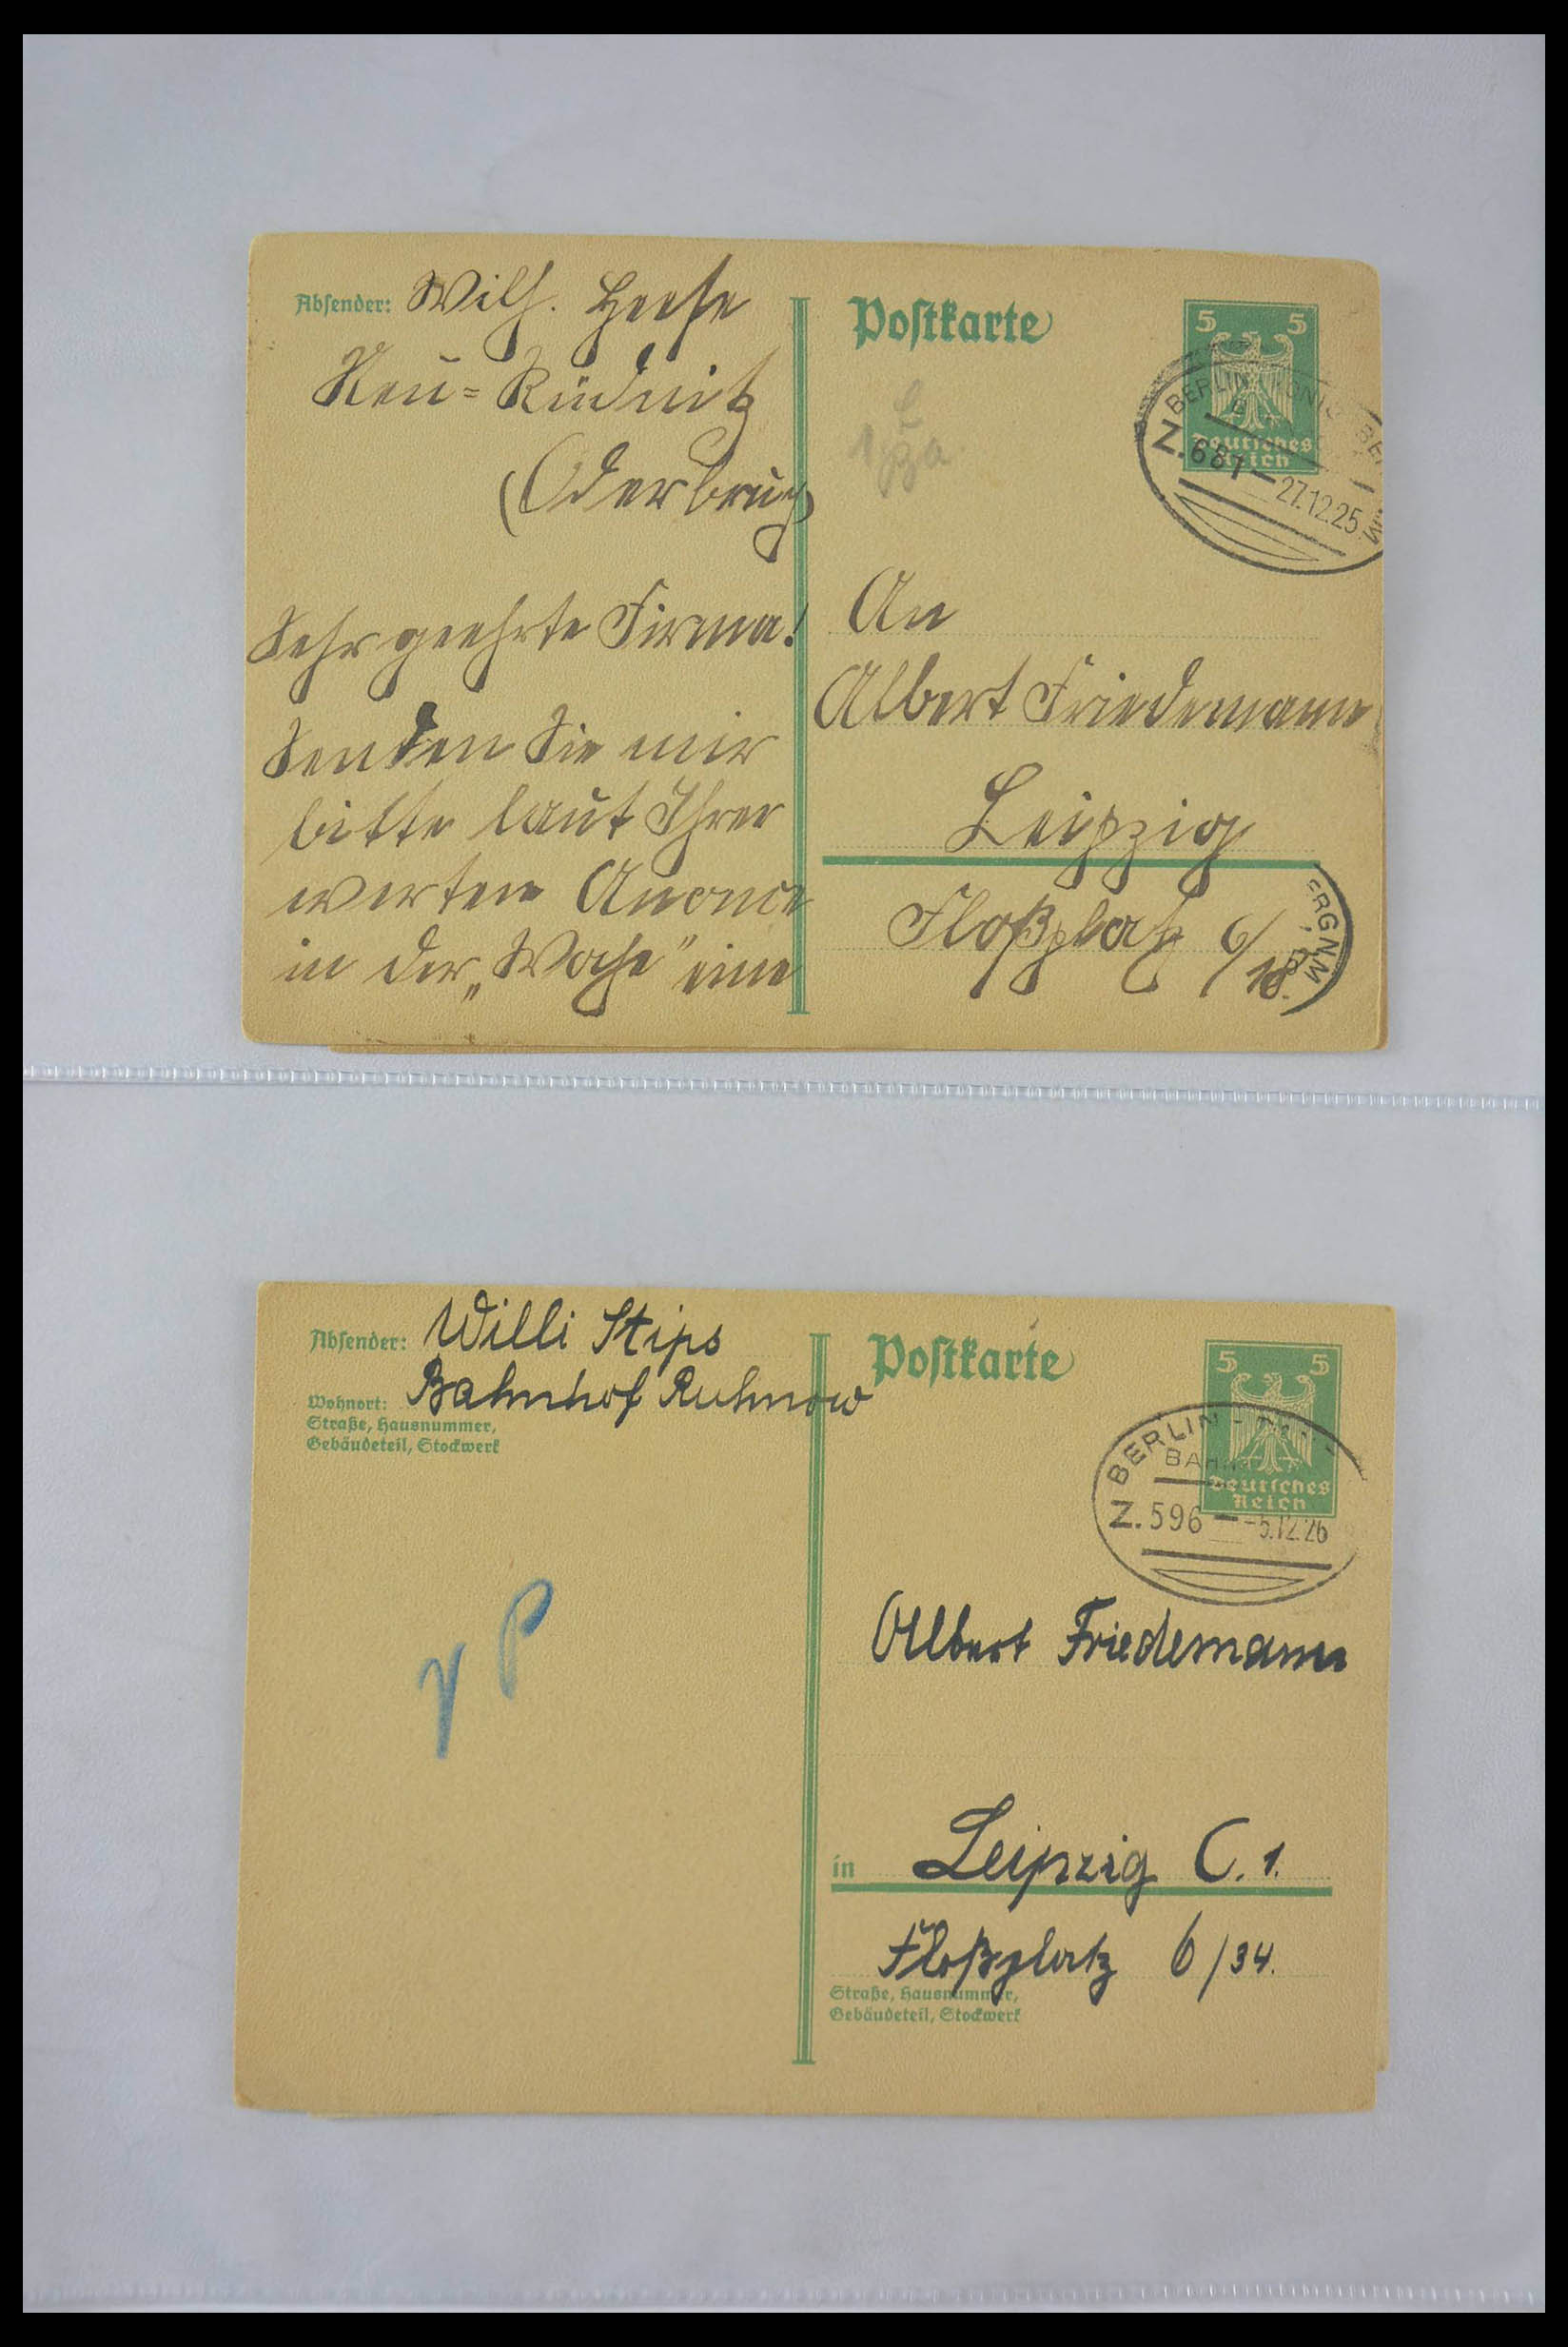 Absender: Wilh. Heese
Neu-Rüdnitz
(Oderbruch
Sehr geehrte Firma!
Senden Sie mir
bitte laut Ihrer
werten Anonce
in der „Woche" eine
Postkarte
5 5
Deutsches
Reich
BERLIN
Z. 681
27.12.25
An
Albert Friedemann
Leipzig
Floßplatz 6/
18.
ERG NM
Absender: Willi Stips
Bahnhof Ruhnow
Wohnort:
Straße, Hausnummer,
Gebäudeteil, Stockwerk
Postkarte
5 5
Deutsches
Reich
BERLIN -
Z. 596 -5.12.26
Albert Friedemann
in Leipzig C. 1.
Floßplatz 6/34.
Straße, Hausnummer,
Gebäudeteil, Stockwerk